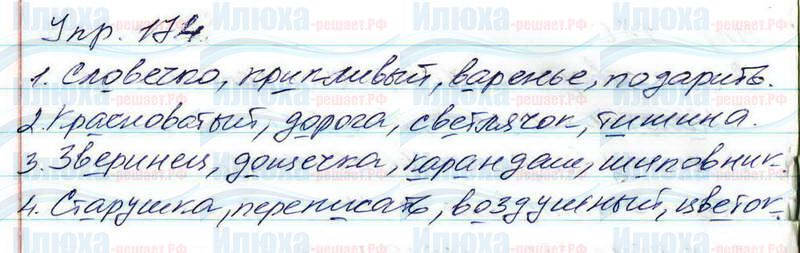 Упр. 174.
1. Словечко, крикливый, варенье, подарить.
2. Красноватый, дорога, светлячок, тишина.
3. Зверинец, дощечка, карандаш, шиповник.
4. Старушка, переписать, воздушный, цветок.
Илюха-решает.РФ